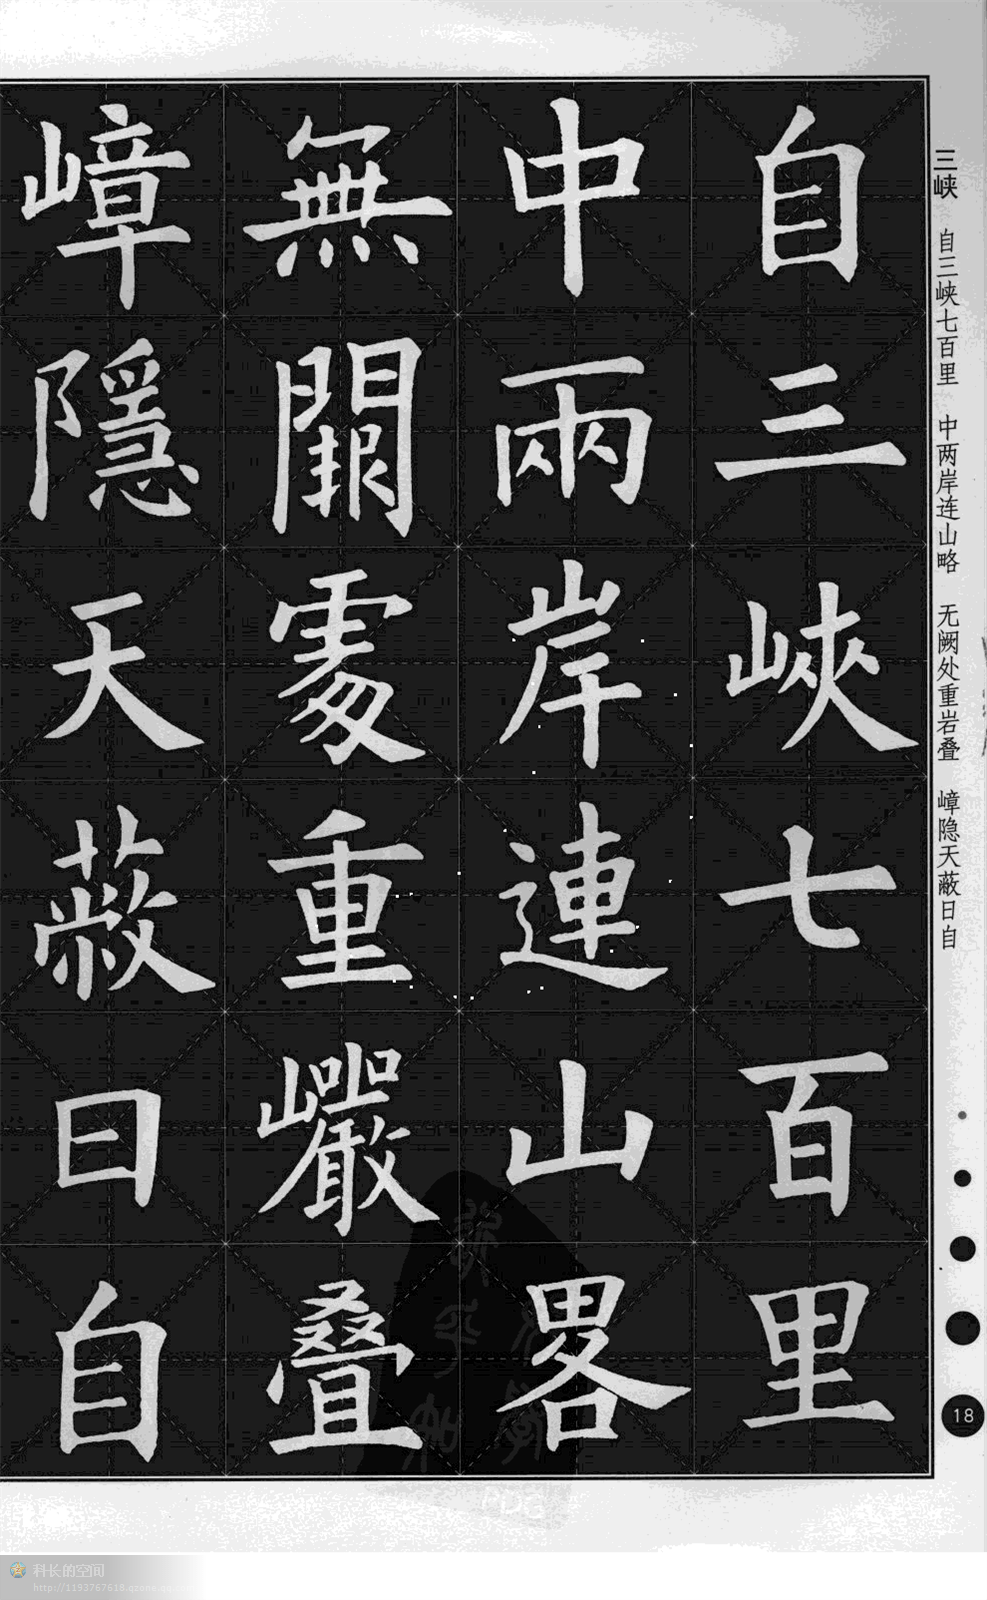 三峡 自三峡七百里 中两岸连山略 无阙处重岩叠 嶂隐天蔽日自
自三峽七百里
中兩岸連山畧
無闕處重巖疊
嶂隱天蔽日自
18
PDG
科长的空间